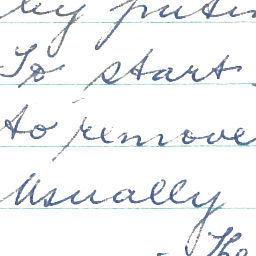 by putin
To start
to remove
Usually
- The